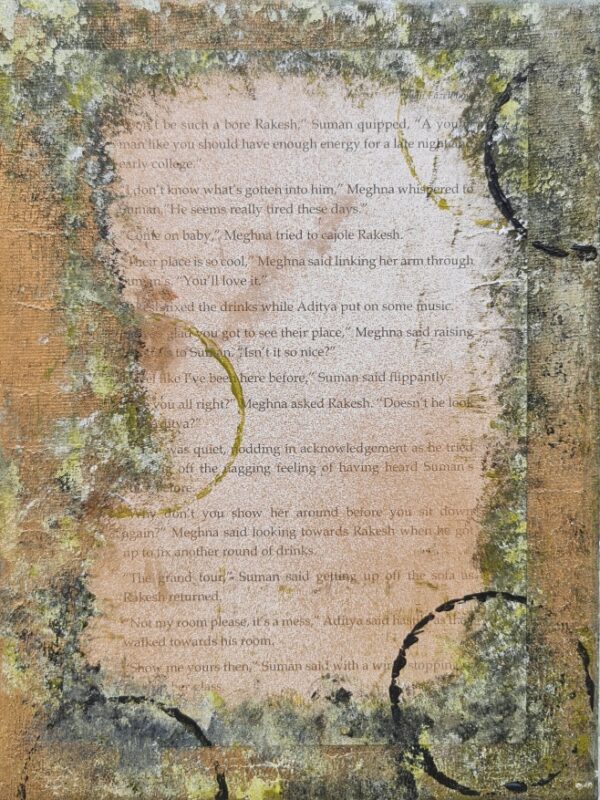 be such a bore Rakesh," Suman quipped, "A young
man like you should have enough energy for a late night
early college."
"I don't know what's gotten into him," Meghna whispered to
Suman, "He seems really tired these days."
"Come on baby," Meghna tried to cajole Rakesh.
"Their place is so cool," Meghna said linking her arm through
"You'll love it."
the drinks while Aditya put on some music.
glad you got to see their place," Meghna said raising
to Suman. "Isn't it so nice?"
like I've been here before," Suman said flippantly.
you all right?" Meghna asked Rakesh. "Doesn't he look
was quiet, nodding in acknowledgement as he tried
off the nagging feeling of having heard Suman's
before.
"Why don't you show her around before you sit down
again?" Meghna said looking towards Rakesh when he got
up to fix another round of drinks.
"The grand tour," Suman said getting up off the sofa as
Rakesh returned.
"Not my room please, it's a mess," Aditya said
walked towards his room.
"Show me yours then," Suman said with a
class.